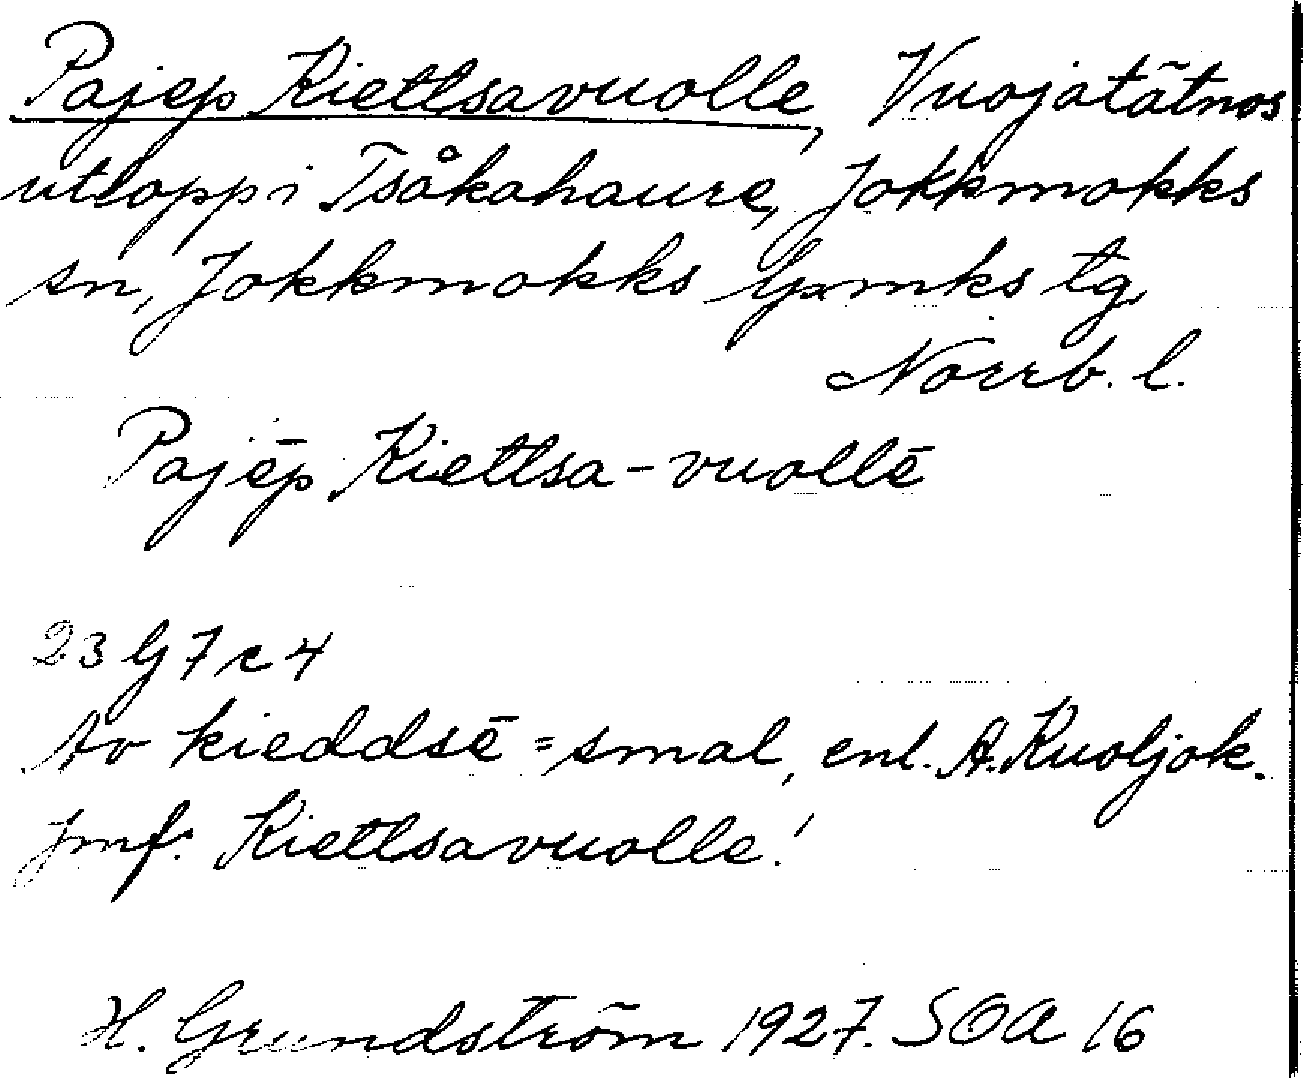 Pajep Kietlsavuolle, Vuojatätnos
utlopp i Tsåkahaure, Jokkmokks
sn, Jokkmokks lpmks tg
Norrb. l.
Pajēp Kietlsa-vuollē
23 G 7 c 4
Av kieddsē = smal, enl. A. Kuoljok.
Jmf. Kietlsavuolle!
H. Grundström 1927. SOA 16